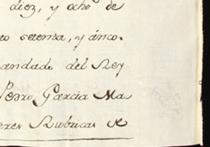 diez, y ocho de
to setenta, y cinco.
andado del Rey
Pedro Garcia Ma
eres Rubricas